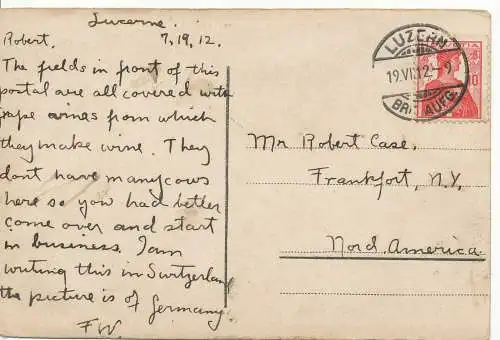 Lucerne.
Robert. 7, 19, 12.
The fields in front of this
postal are all covered with
grape vines from which
they make wine. They
dont have many cows
here so you had better
come over and start
in business. I am
writing this in Switzerland
the picture is of Germany
F.W.
LUZERN
19.VII.12.-9
HELVETIA
Mr Robert Case.
Frankfort, N.Y.
Nord America.